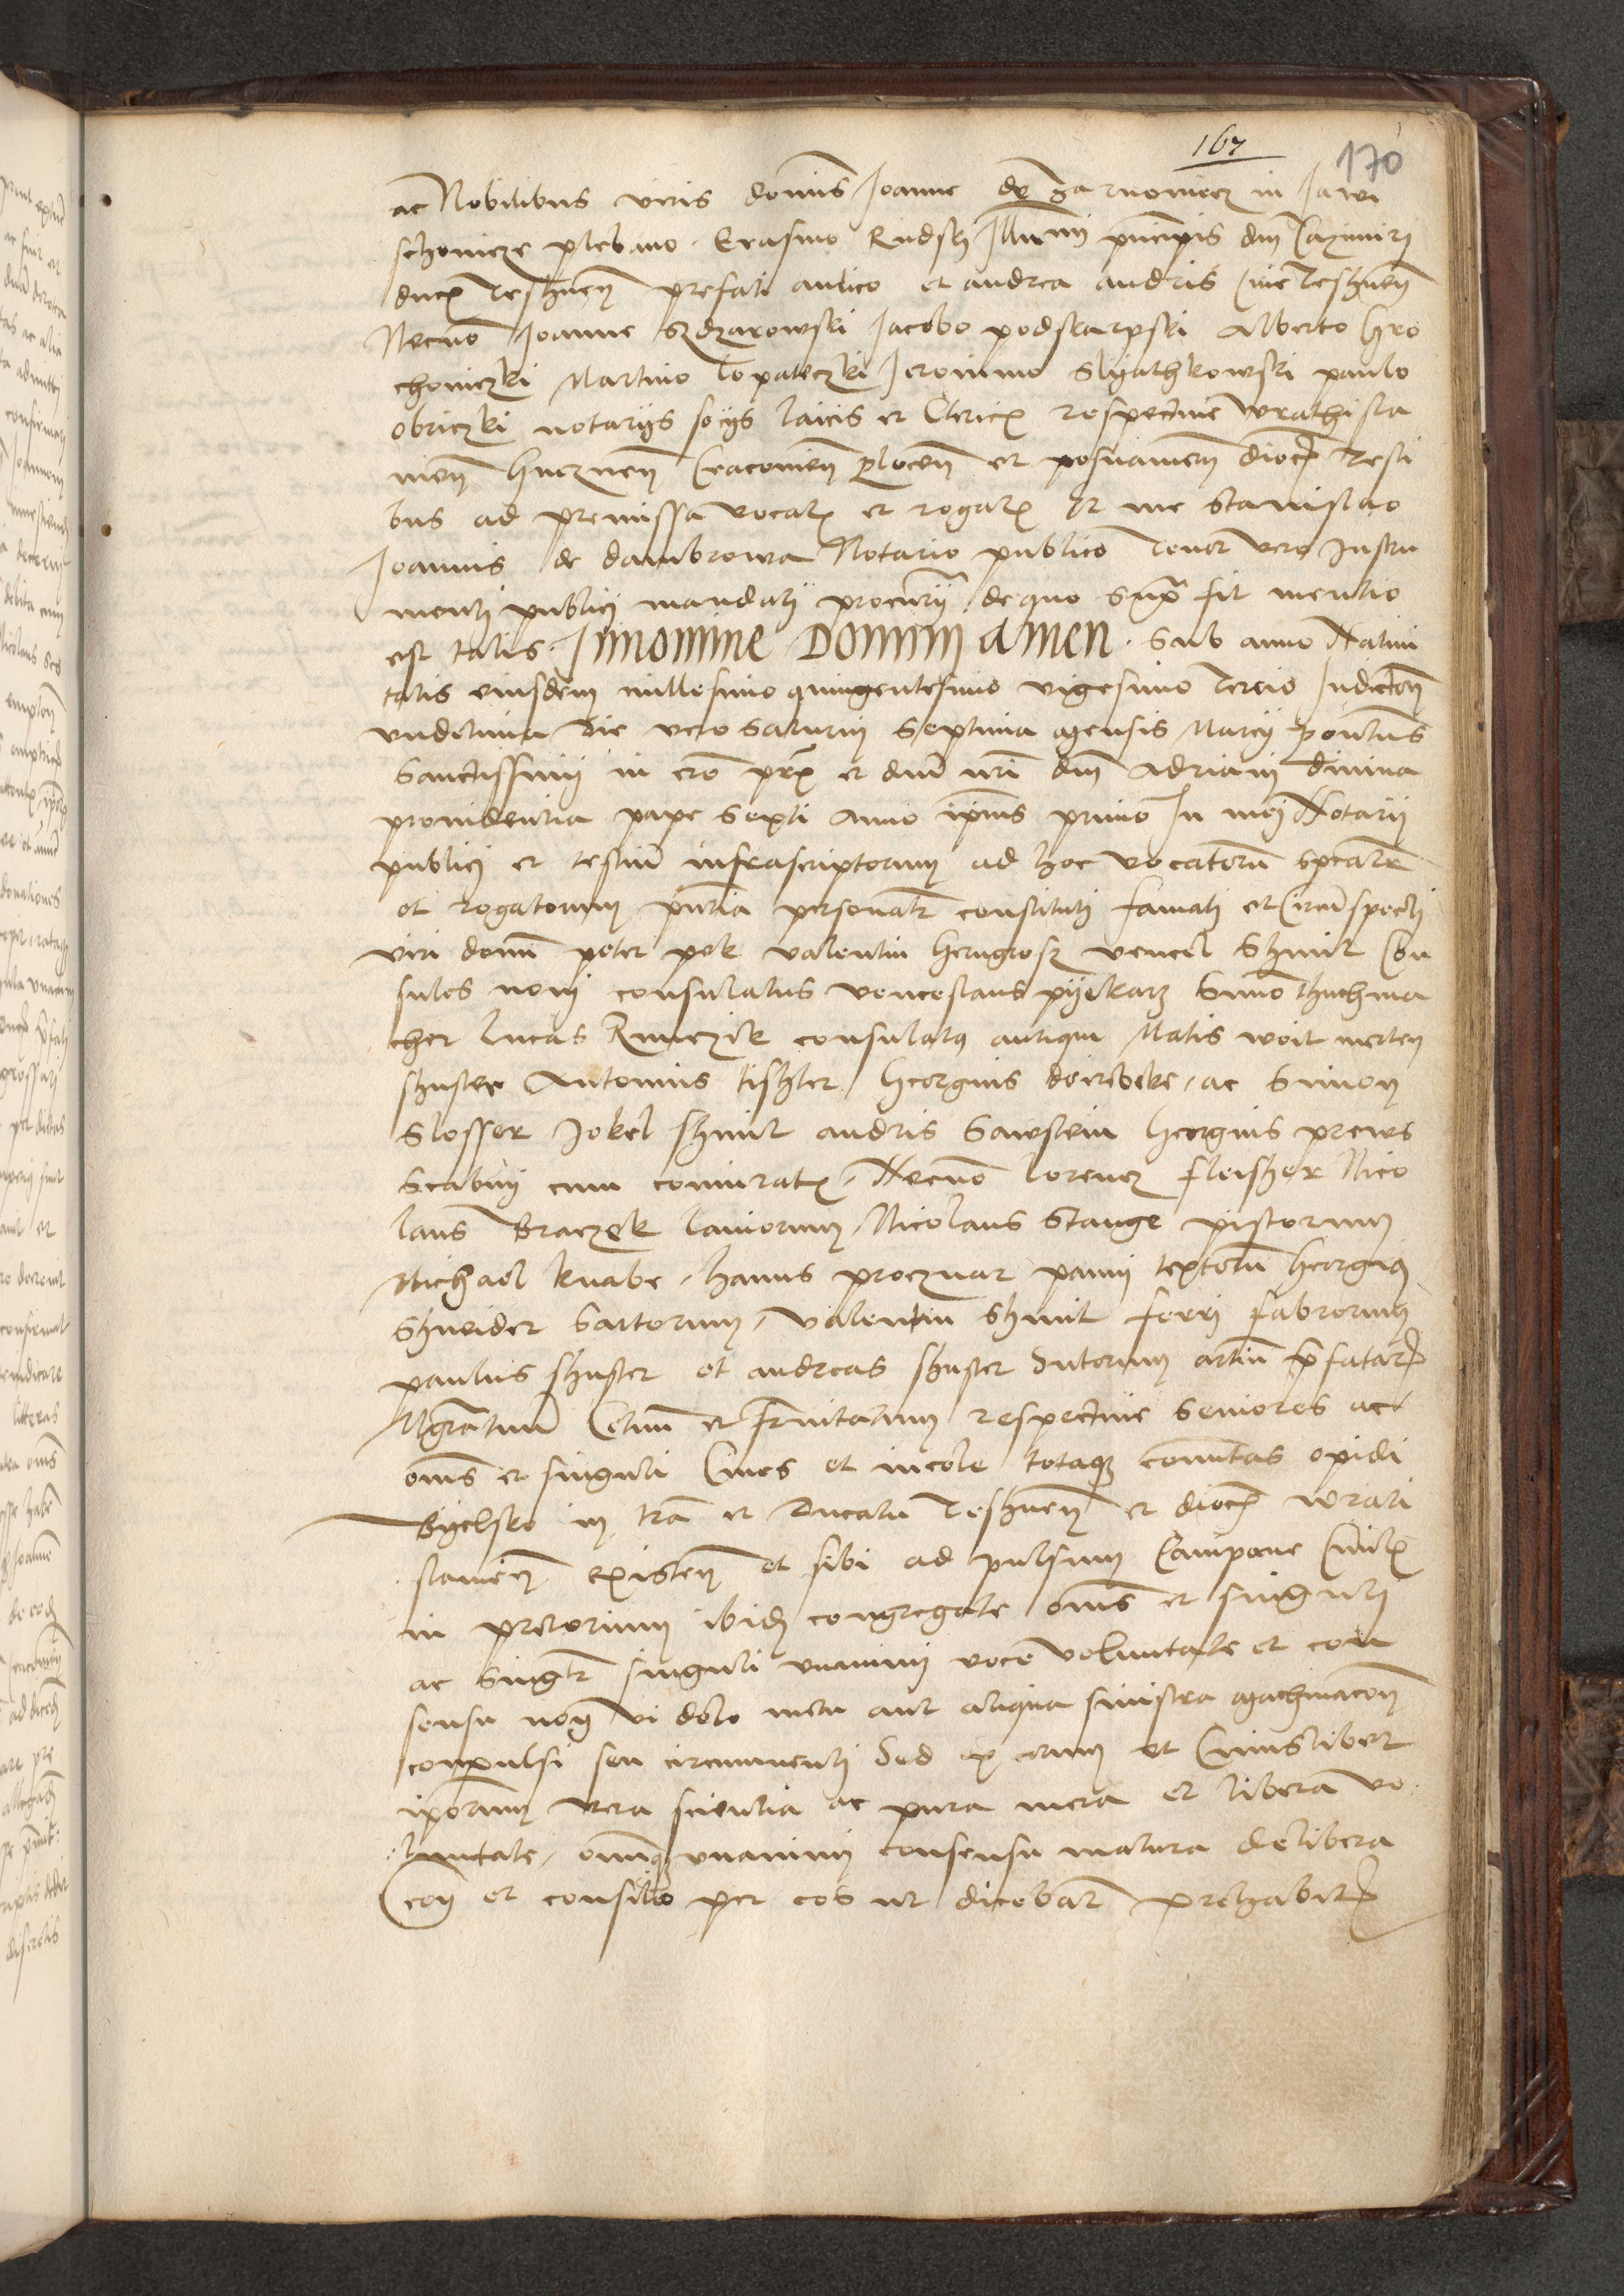 167
170
ac Nobilibus viris domis Joanne de zarnowiecz in Jawi
schowicze plebano Erasmo Rudsky Illumi pncipis dni Cazimiri
ducz Teshnen prefati aulico et andrea andris Cive Teshnen
Necno Joanne Jacobo podskarpski Alberto Gro
choniczki Martino lopateczki Jeronimo Slyathkowski paulo
obriczki notarijs socijs laicis et Clericz respective wrathisla
vien Gneznen Cracovien plocen et posnanien dioc Testi
bus ad premissa vocatz et rogatz Et me Stanislao
Joannis de dambrowa Notario publico Tenor vero Instru
menti publici mandati procurij de quo supra fit mentio
est talis. Innomine Domini amen. Sub anno Nativi
tatis eiusdem millesimo quingentesimo vigesimo Tercio Indicton
undecima Die vero Saturni Septima mensis Marcij pontus
Sanctissimi in cro prz et dni nri dni Adriani divina
providentia pape Sexti anno ipius primo In mei Notarij
publici et testiu infrascriptorum ad hoc vocatoru spealr
et rogatorum pntia personalr constituti famati et Circuspecti
viri domi peter pok valentin herngrosz vencel Shmit Con
sules novi consulatus venceslaus pyekarz Simo thuchma
cher lucas Kunczik consulatus antiqui Matis woit merten
shuster Antonius tishler Georgius ac Simon
Slosser Jokel shmit andris Sawstein Georgius prews
Scabini cum coniuratz Necno lorencz fleisher Nico
laus Braczek laniorum Nicolaus Stange pistorum
Michael knabe hanus procznar panni textoru Georgius
Shneider Sartorum valentin Shmit ferri fabrorum
paulus shuster et andreas shuster Sutorum artiu pfatar
Mgratuu Cetuu et frnitatum respective Seniores ac
oms et singuli Cives et incole totaque counitas opidi
Byelsko in tra et Ducatu Teshnen et dioc wrati
slavien existen et sibi ad pulsum Campane Civilz
in pretorium ibidem congregate oms et singuli
ac singlr singuli unanimi voce voluntate et con
sensu non vi dolo metu aut aliqua sinistra machinacon
conpulsi seu circumventi Sed ex eorum et Cuiuslibet
ipsorum vera scientia ac pura mera et libera vo
luntate, omniq unanimi consensu matura delibera
con et consilio per eos ut dicebat prehabit